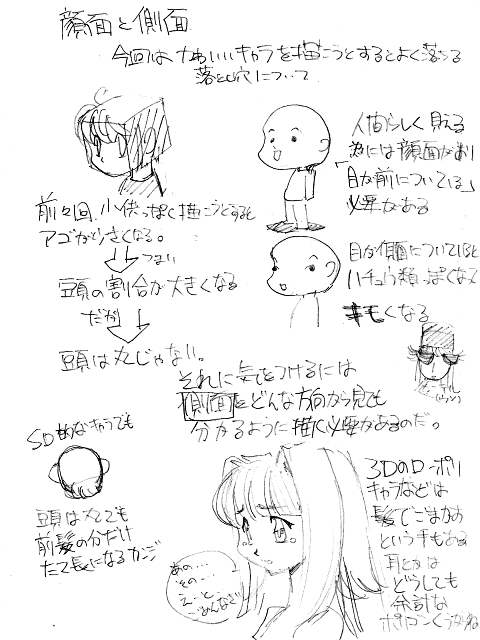 顔面と側面
今回は、かわいいキャラを描こうとするとよく落ちる
落とし穴について
人間らしく見える
為には顔面があり
「目が前についている」
必要がある
前々回、小供っぽく描こうとすると
アゴが小さくなる。
つまり
頭の割合が大きくなる
だが
頭は丸じゃない。
目が側面についていると
ハチュウ類っぽくなって
キモくなる
それに気をつけるには
側面をどんな方向から見ても
分かるように描く必要があるのだ。
SD的なキャラでも
頭は丸でも
前髪の分だけ
たて長になるカンジ
3Dのローポリ
キャラなどは
髪でごまかす
という手もある
耳とかは
どうしても
余計な
ポリゴンくうからね
あの…
その…
えーと…
ごめんなさい